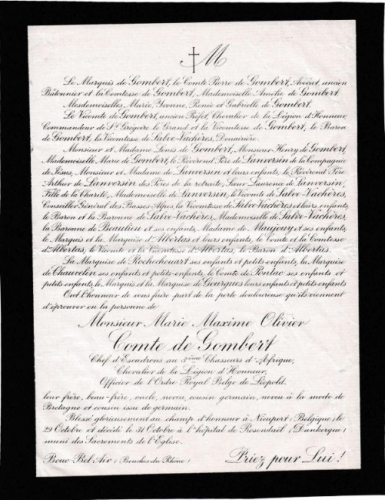 M
Le Marquis de Gombert, le Comte Pierre de Gombert, Avocat, ancien
Bâtonnier et la Comtesse de Gombert, Mademoiselle Amélie de Gombert,
Mesdemoiselles Marie, Yvonne, Renée et Gabrielle de Gombert,
Le Vicomte de Gombert, ancien Préfet, Chevalier de la Légion d'Honneur,
Commandeur de St Grégoire le Grand et la Vicomtesse de Gombert, le Baron
de Gombert, la Vicomtesse de Salve-Vachères, Douairière,
Monsieur et Madame Louis de Gombert, Monsieur Henry de Gombert,
Mademoiselle Marie de Gombert, le Révérend Père de Lanversin de la Compagnie
de Jésus, Monsieur et Madame de Lanversin et leurs enfants, le Révérend Père
Arthur de Lanversin des Pères de la retraite, Sœur Laurence de Lanversin,
Fille de la Charité, Mademoiselle de Lanversin, le Vicomte de Salve-Vachères,
Conseiller Général des Basses Alpes, la Vicomtesse de Salve-Vachères et leurs enfants,
le Baron et la Baronne de Salve-Vachères, Mademoiselle de Salve-Vachères,
la Baronne de Beaulieu et ses enfants, Madame de Maujouy et ses enfants,
le Marquis et la Marquise d'Albertas et leurs enfants, le Comte et la Comtesse
d'Albertas, le Vicomte et la Vicomtesse d'Albertas, le Baron d'Albertas,
La Marquise de Rochechouart ses enfants et petits enfants, la Marquise
de Chauvelin ses enfants et petits-enfants, le Comte de ses enfants et
petits enfants, le Marquis et la Marquise de Gourgues leurs enfants et petits enfants
Ont l'honneur de vous faire part de la perte douloureuse qu'ils viennent
d'éprouver en la personne de
Monsieur Marie Maxime Olivier
Comte de Gombert
Chef d'Escadrons au 5ème Chasseurs d'Afrique,
Chevalier de la Légion d'Honneur,
Officier de l'Ordre Royal Belge de Léopold,
leur frère, beau-frère, oncle, neveu, cousin germain, neveu à la mode de
Bretagne et cousin issu de germain.
Blessé glorieusement au champ d'honneur à Nieuport (Belgique) le
29 Octobre et décédé le 31 Octobre à l'hôpital de Rosendaël (Dunkerque)
muni des Sacrements de l'Eglise.
Bouc-Bel-Air (Bouches du Rhône) Priez pour Lui!